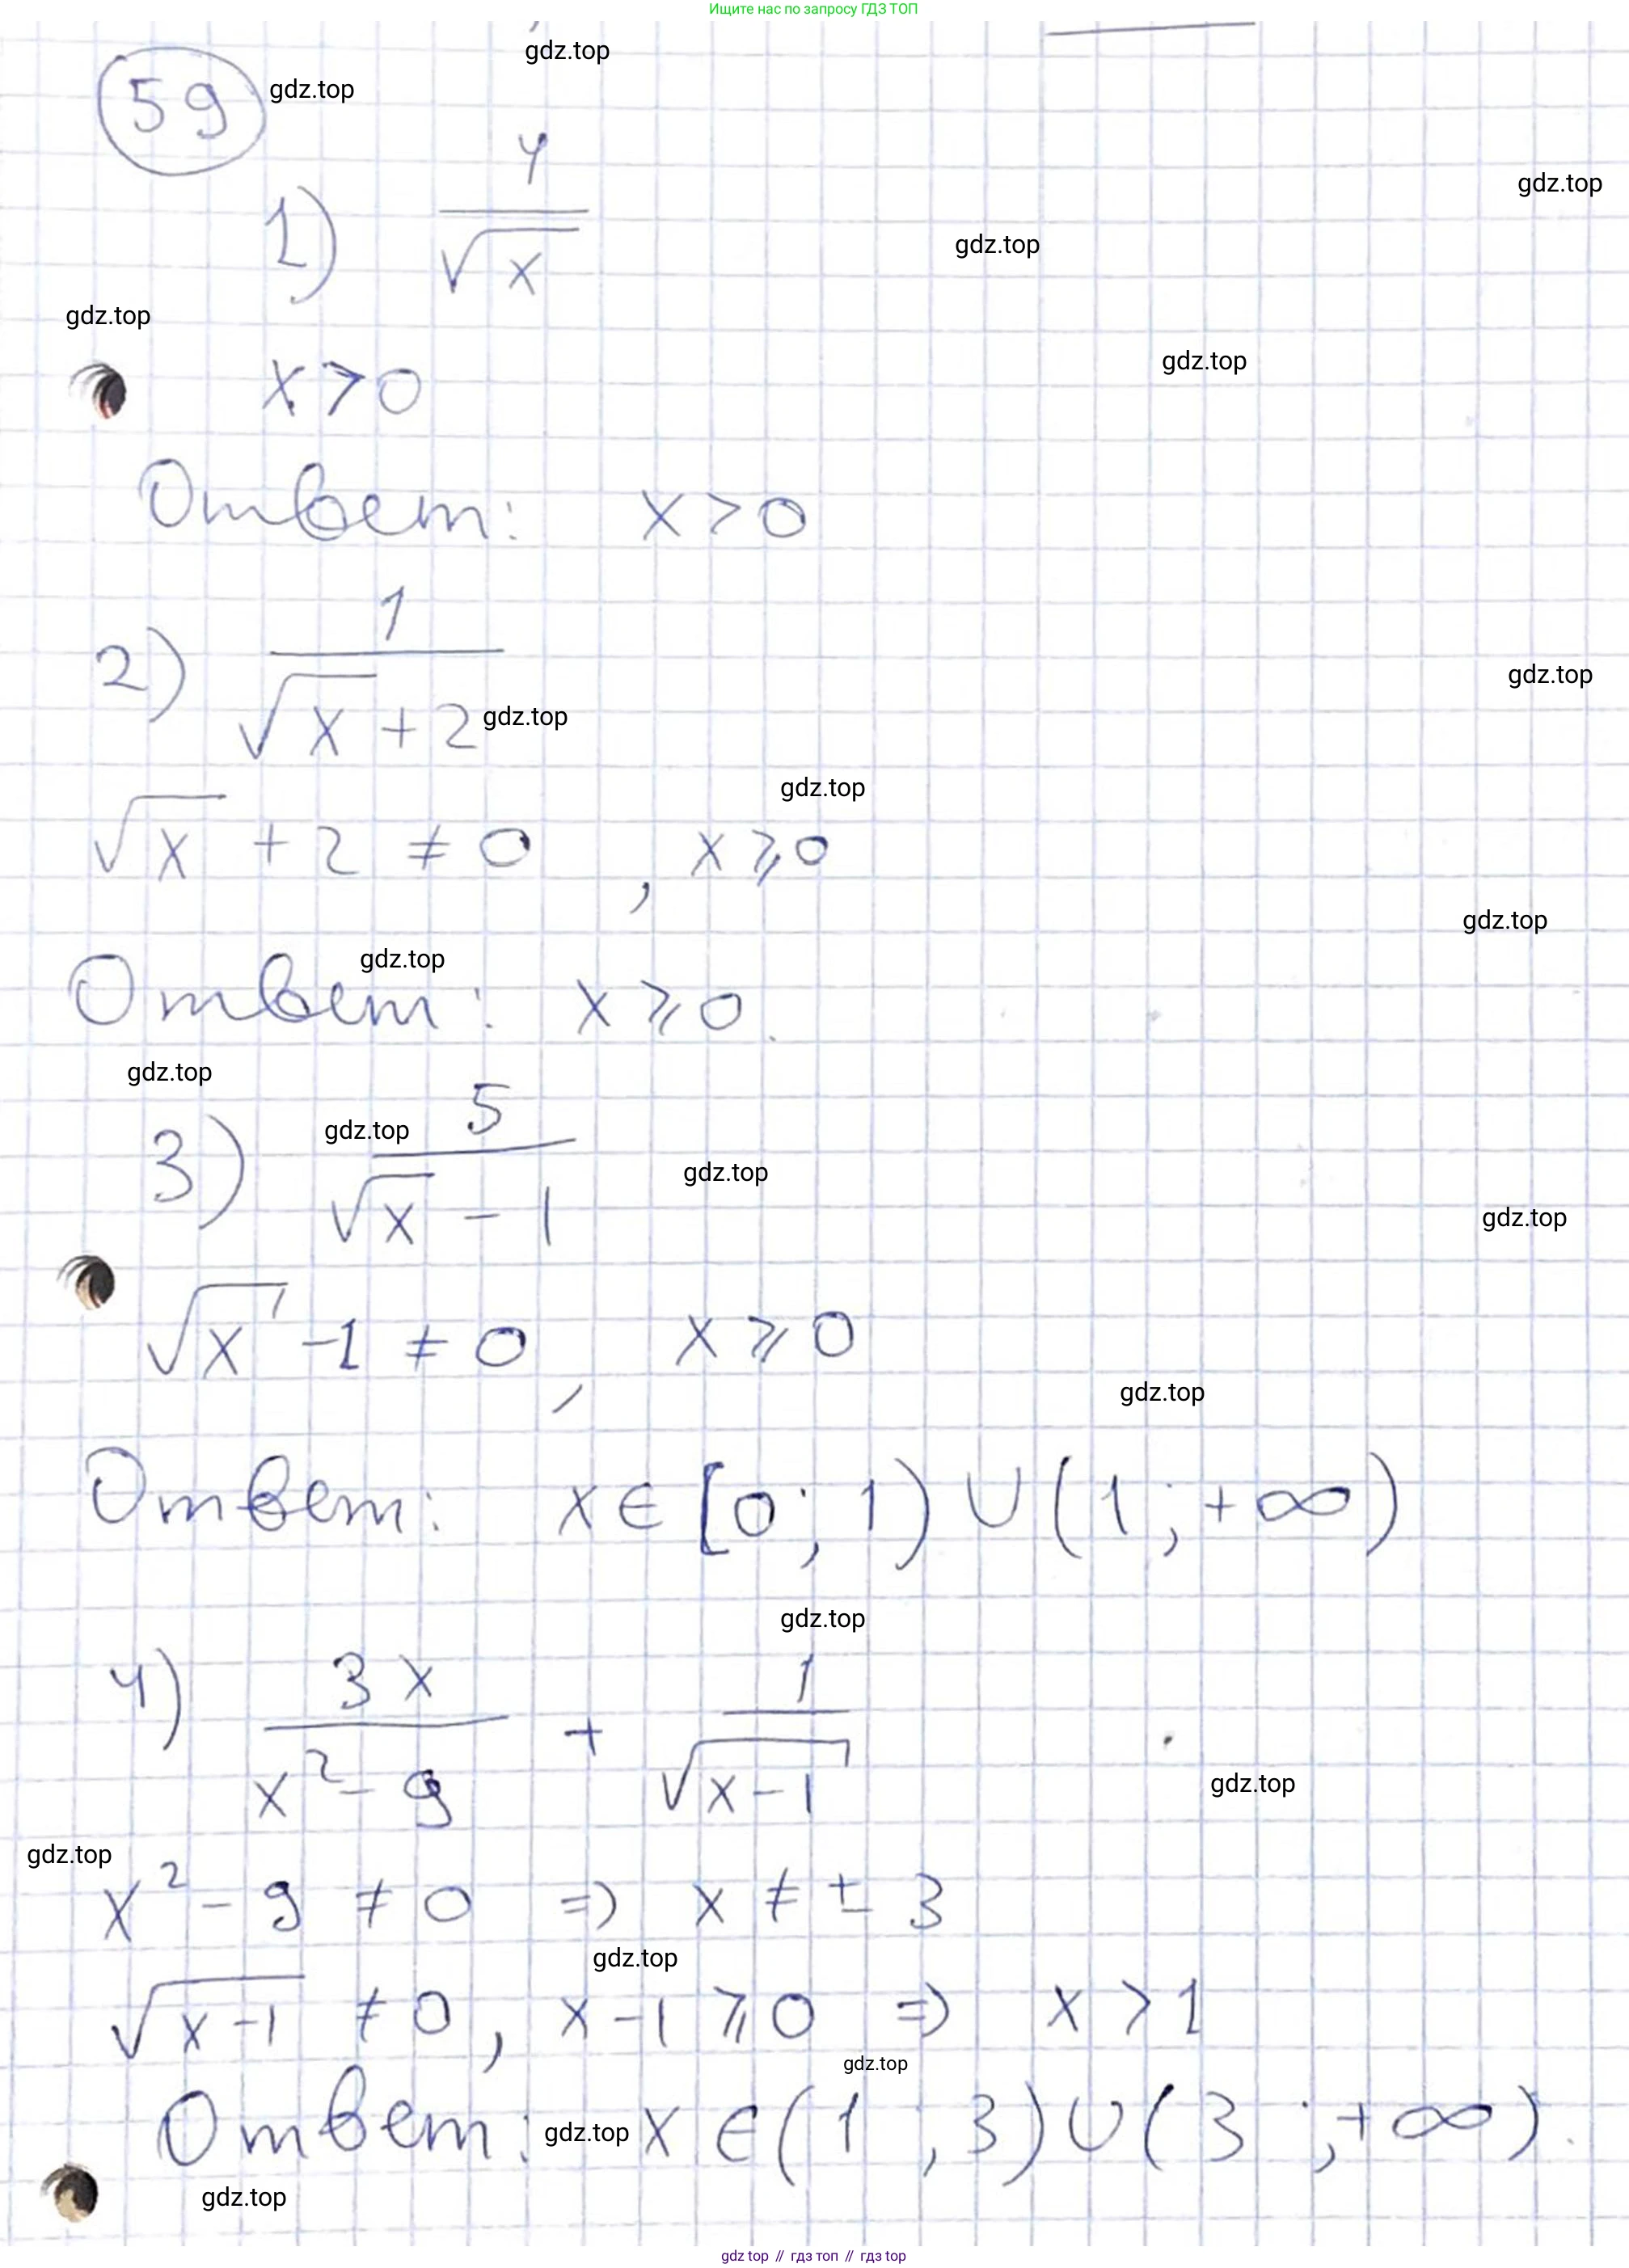 Ищите нас по запросу ГДЗ ТОП
gdz.top
59 gdz.top
gdz.top
1) 4/√x
gdz.top
gdz.top
gdz.top
x > 0
Ответ: x > 0
2) 1/(√x + 2)
gdz.top
gdz.top
gdz.top
√x + 2 ≠ 0, x ⩾ 0
gdz.top
gdz.top
Ответ: x ⩾ 0.
gdz.top
3) 5/(√x - 1)
gdz.top
gdz.top
gdz.top
√x - 1 ≠ 0, x ⩾ 0
gdz.top
Ответ: x ∈ [0; 1) ∪ (1; +∞)
gdz.top
4) 3x/(x² - 9) + 1/√(x - 1)
gdz.top
gdz.top
x² - 9 ≠ 0 => x ≠ ± 3
gdz.top
√(x - 1) ≠ 0, x - 1 ⩾ 0 => x > 1
gdz.top
Ответ: x ∈ (1, 3) ∪ (3; +∞).
gdz.top
gdz.top
gdz top // гдз топ // gdz top